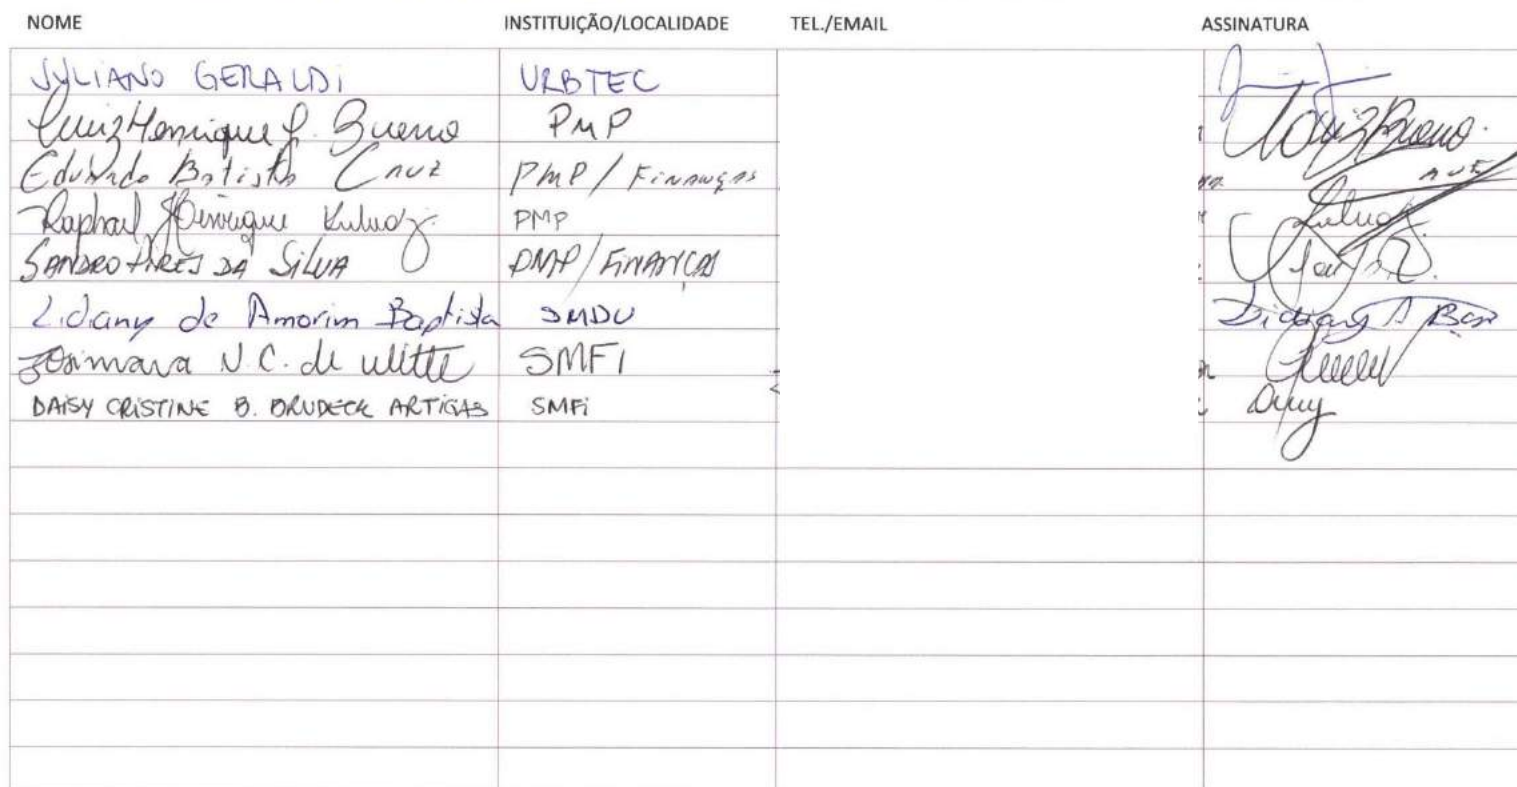 NOME INSTITUIÇÃO/LOCALIDADE TEL./EMAIL ASSINATURA
JULIANO GERALDI URBTEC
Luiz Henrique G. Bueno PMP Luiz Bueno.
Eduardo Batista Cruz PMP / FINANÇAS
Raphael Henrique PMP
SANDRO PIRES DA SILVA PMP / FINANÇAS
Lidiany de Amorim Baptista SMDU
Josimara N.C. de Witte SMFI
DAISY CRISTINE B. BRUDECK ARTIGAS SMFi